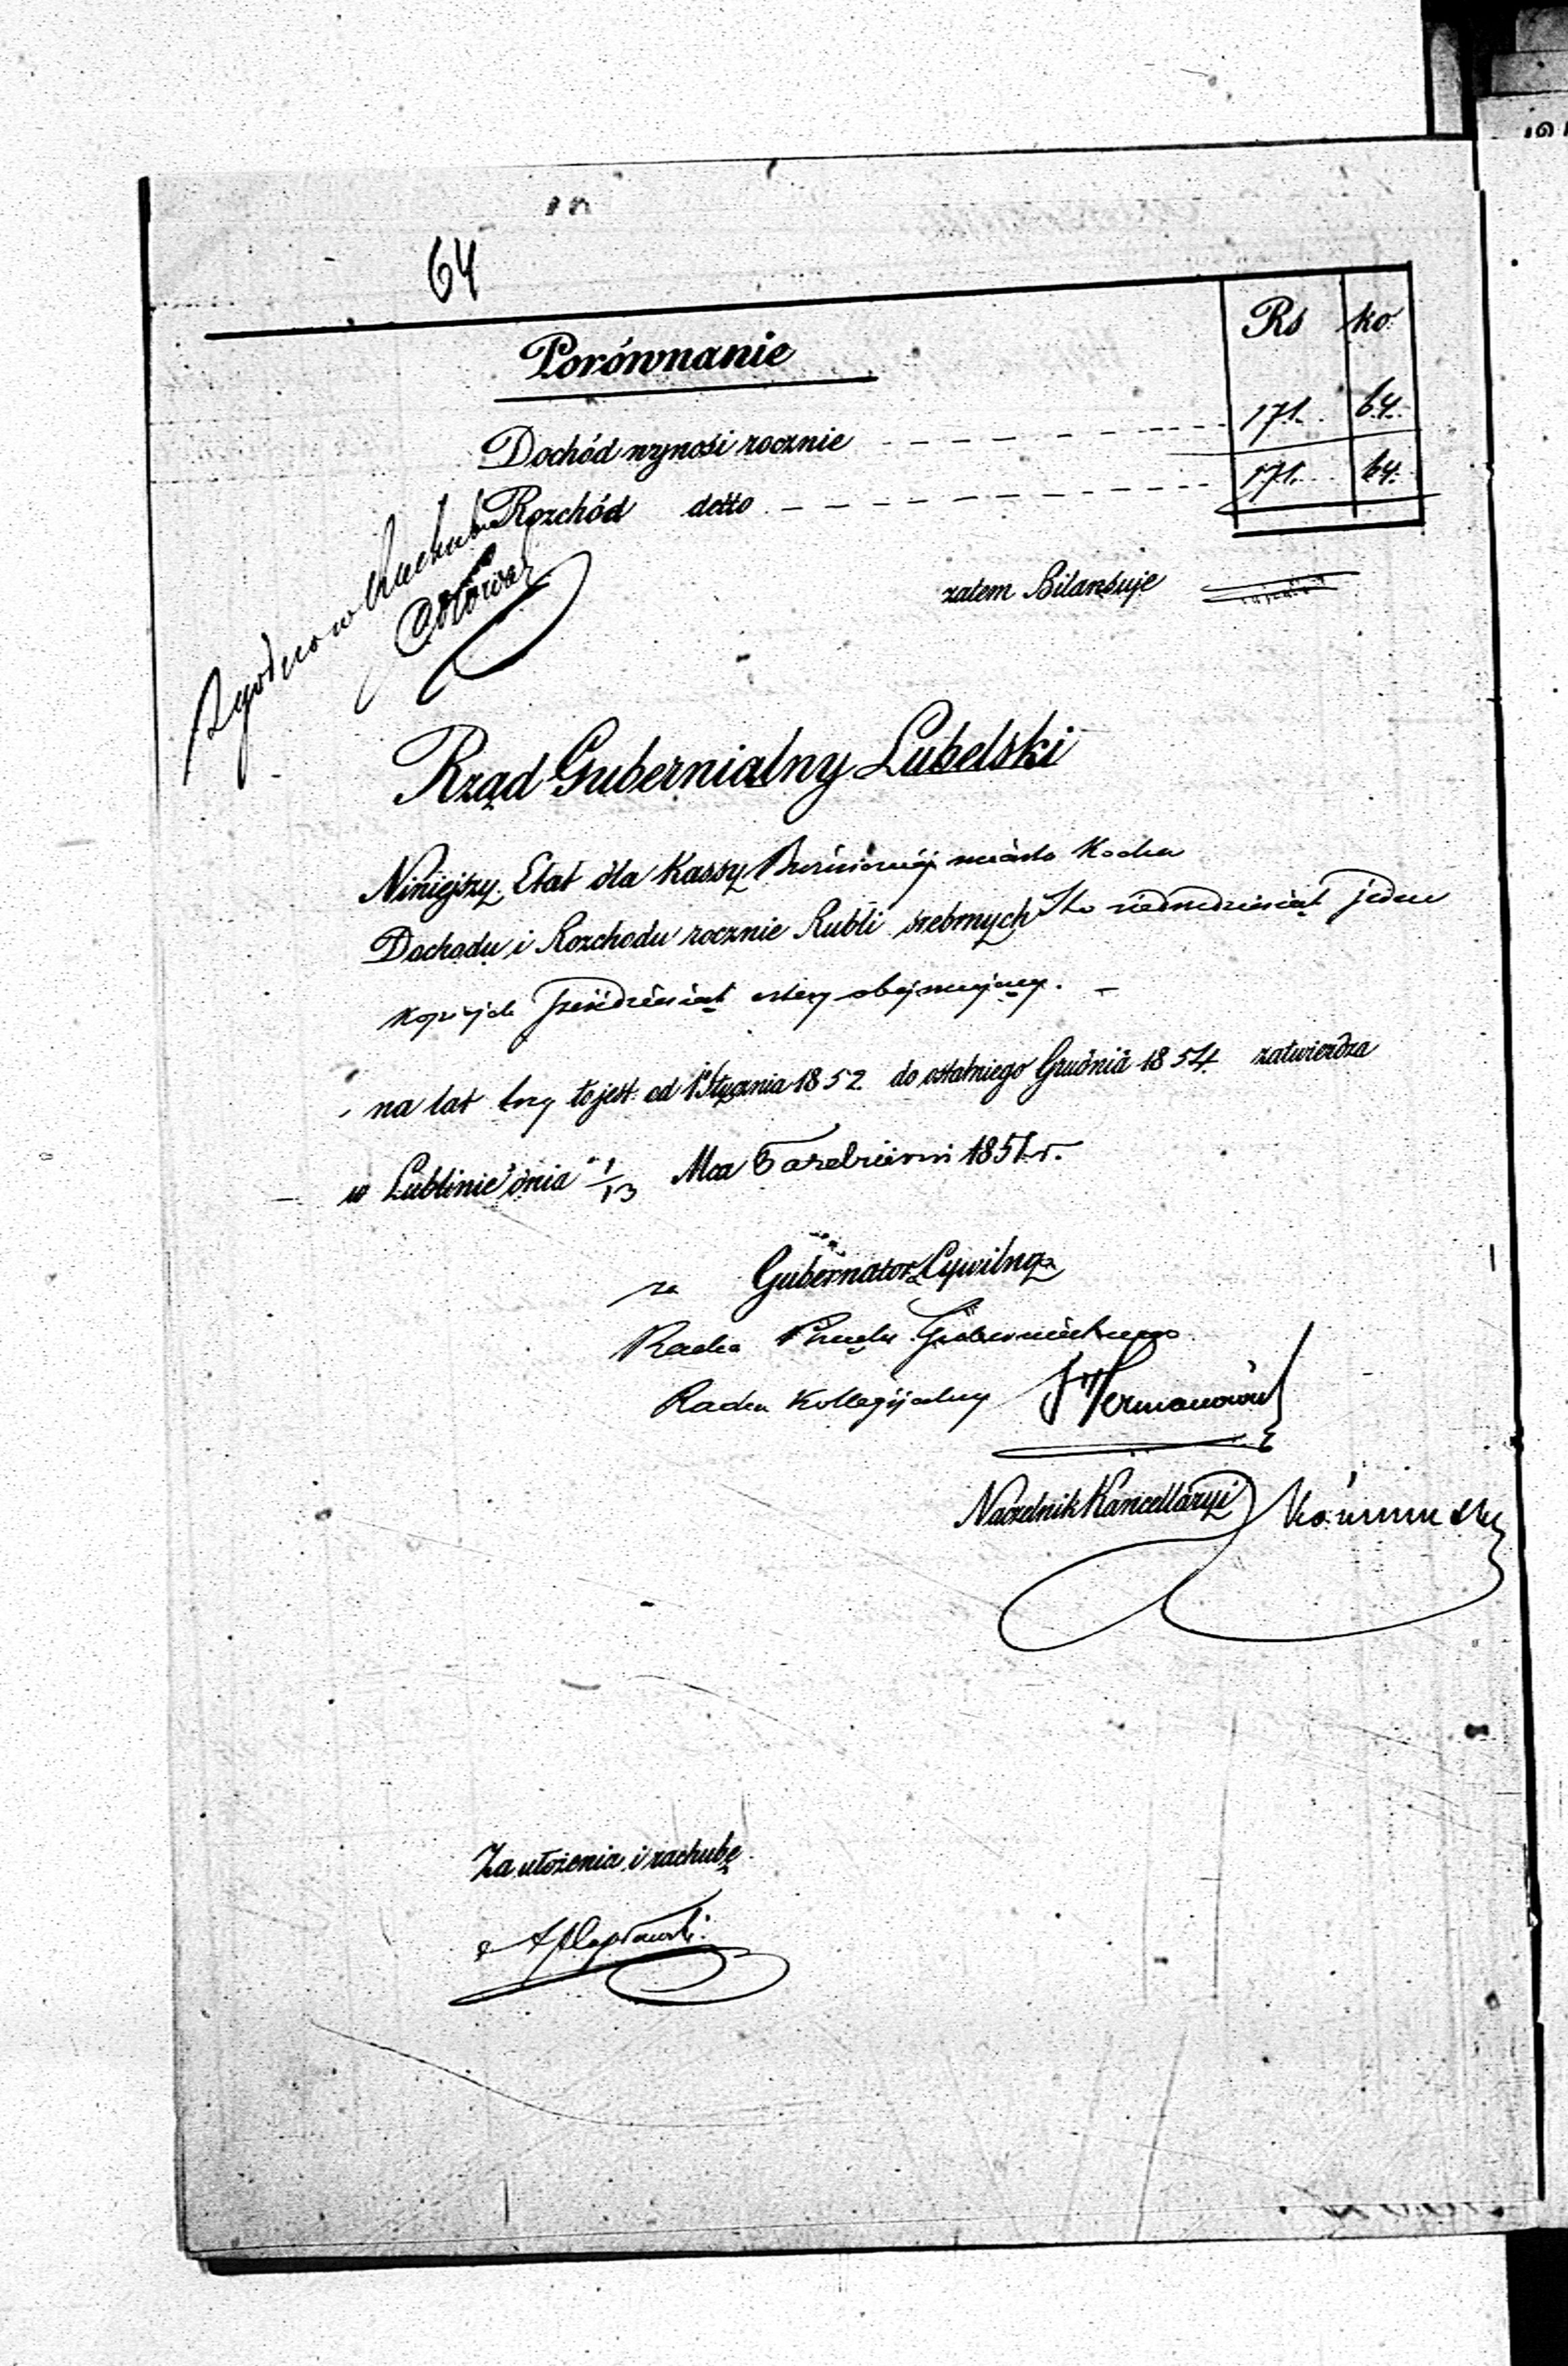 64
Porównanie
Rs ko
Dochód wynosi rocznie 171. 64.
Rozchód detto 171. 64.
zatem Bilansuje
Zgodno w Rachubie
Rząd Gubernialny Lubelski
Niniejszy Etat dla Kassy Bożniczéj miasta Kocka
Dochodu i Rozchodu rocznie Rubli srebrnych Sto siedmdziesiąt jeden
kopiejek sześćdziesiąt cztery obejmujący. —
na lat trzy to jest od 1 Stycznia 1852 do ostatniego Grudnia 1854 zatwierdza
w Lublinie dnia 1/13 Mca 1851 r.
za Gubernator Cywilny
Radca Rządu Gubernialnego
Radca Kollegijalny
Naczelnik Kancellaryi
Za ułożenia i rachubę